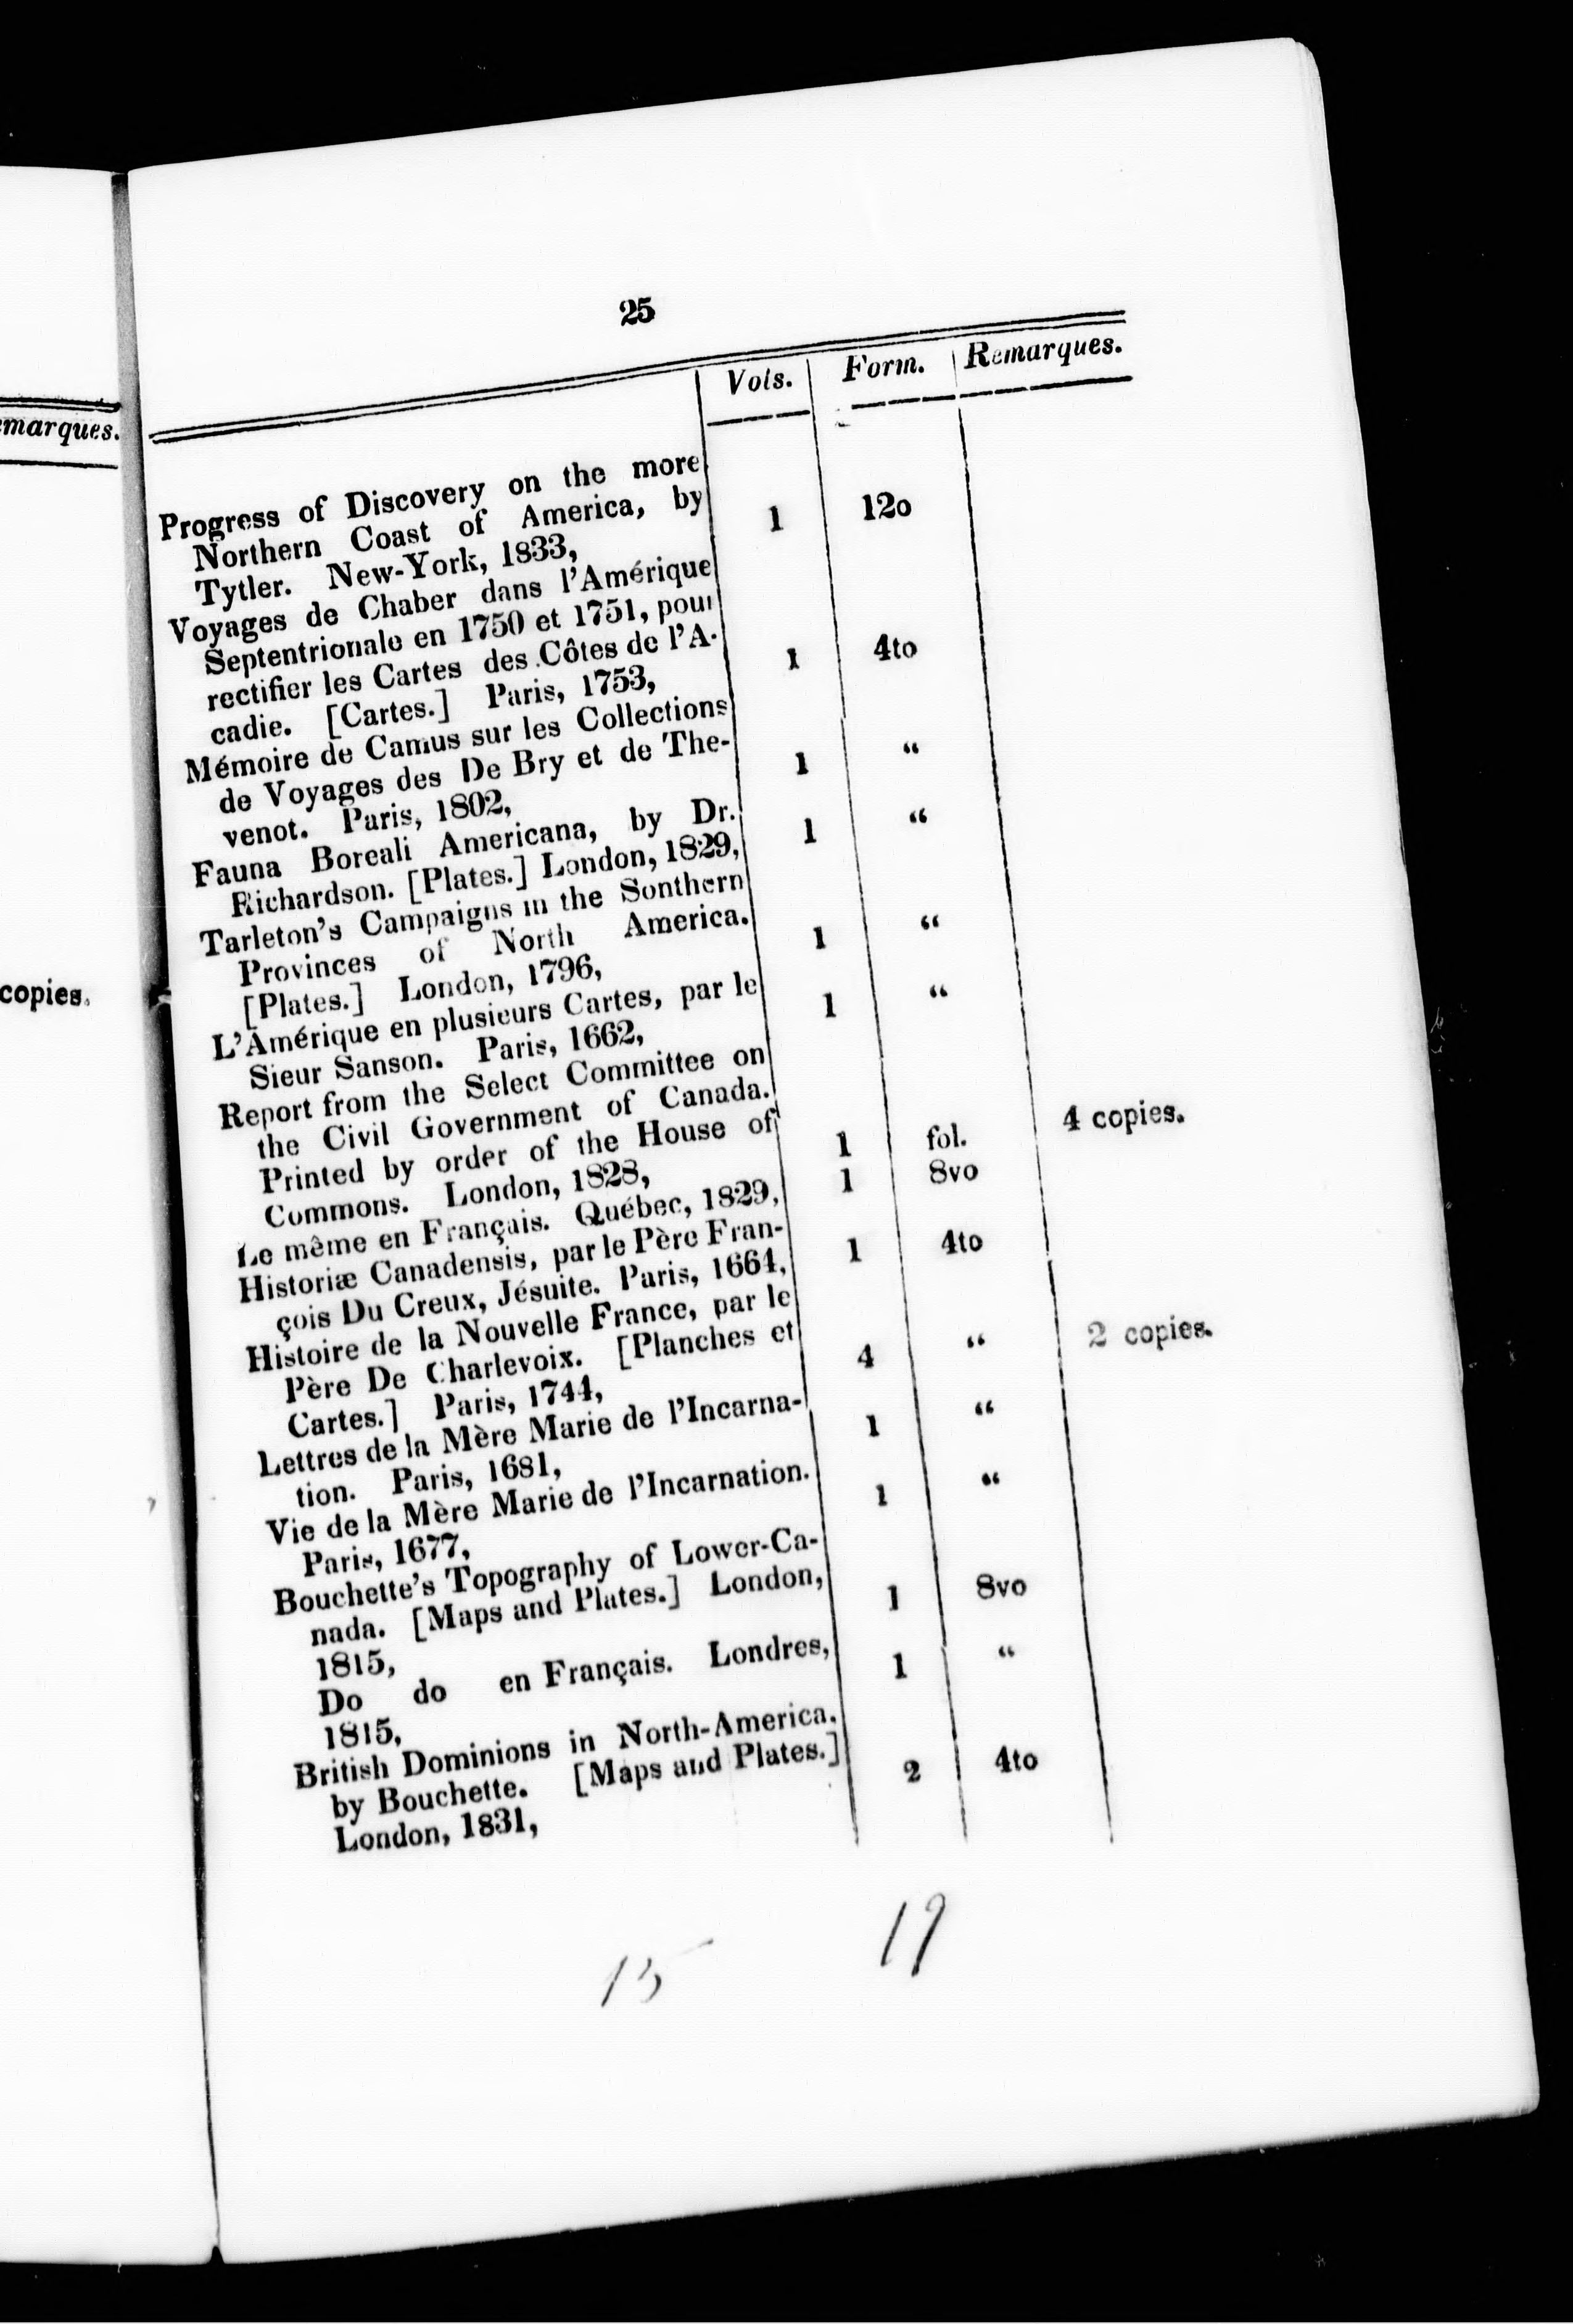 emarques.
copies.
25
Vols. Form. Remarques.
Progress of Discovery on the more
Northern Coast of America, by
Tytler. New-York, 1833, 1 12o
Voyages de Chaber dans l'Amérique
Septentrionale en 1750 et 1751, pour
rectifier les Cartes des Côtes de l'A-
cadie. [Cartes.] Paris, 1753, 1 4to
Mémoire de Camus sur les Collections
de Voyages des De Bry et de The-
venot. Paris, 1802, 1 "
Fauna Boreali Americana, by Dr.
Richardson. [Plates.] London, 1829, 1 "
Tarleton's Campaigns in the Sonthern
Provinces of North America.
[Plates.] London, 1796, 1 "
L'Amérique en plusieurs Cartes, par le
Sieur Sanson. Paris, 1662, 1 "
Report from the Select Committee on
the Civil Government of Canada.
Printed by order of the House of
Commons. London, 1828, 1 fol. 4 copies.
Le même en Français. Québec, 1829, 1 8vo
Historiæ Canadensis, par le Père Fran-
çois Du Creux, Jésuite. Paris, 1664, 1 4to
Histoire de la Nouvelle France, par le
Père De Charlevoix. [Planches et
Cartes.] Paris, 1744, 4 " 2 copies.
Lettres de la Mère Marie de l'Incarna-
tion. Paris, 1681, 1 "
Vie de la Mère Marie de l'Incarnation.
Paris, 1677, 1 "
Bouchette's Topography of Lower-Ca-
nada. [Maps and Plates.] London,
1815, 1 8vo
Do do en Français. Londres,
1815, 1 "
British Dominions in North-America.
by Bouchette. [Maps and Plates.]
London, 1831, 2 4to
15 19